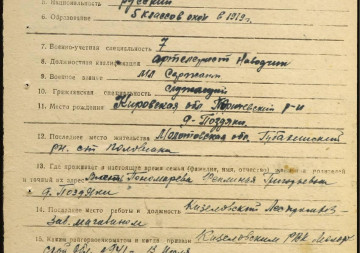 5. Национальность русский
6. Образование 5 классов окон в 1919 г.
7. Военно-учетная специальность 7
8. Должностная квалификация артелерист Наводчик
9. Военное звание Мл Сержант
10. Гражданская специальность служащий
11. Место рождения Кировская обл р-н
д. Поздяки
12. Последнее место жительства Молотовская обл,
рн. ст Половинка
13. Где проживает в настоящее время семья (фамилия, имя, отчество) родителей
и точный их адрес Пономарева Григорьевна
д. Поздяки
14. Последнее место работы и должность Кизеловский
Зав. магазином
15. Каким райгорвоенкоматом и когда призван Кизеловским РВК
обл. 1941